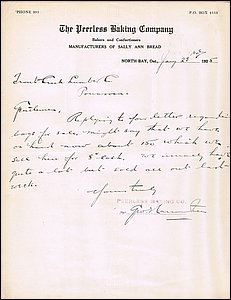 'PHONE 293
P.O. BOX
The Peerless Baking Company
Bakers and Confectioners
MANUFACTURERS OF SALLY ANN BREAD
NORTH BAY, Ont., Jany 23rd 1925
Trout Creek Lumber Co
Powassan
Gentlemen,
Replying to your letter regarding
bags for sale, might say that we have
on hand now about 150 which we
sell here for 8¢ each. We usually have
quite a lot but sold are out last
week.
Yours truly
PEERLESS BAKING CO.